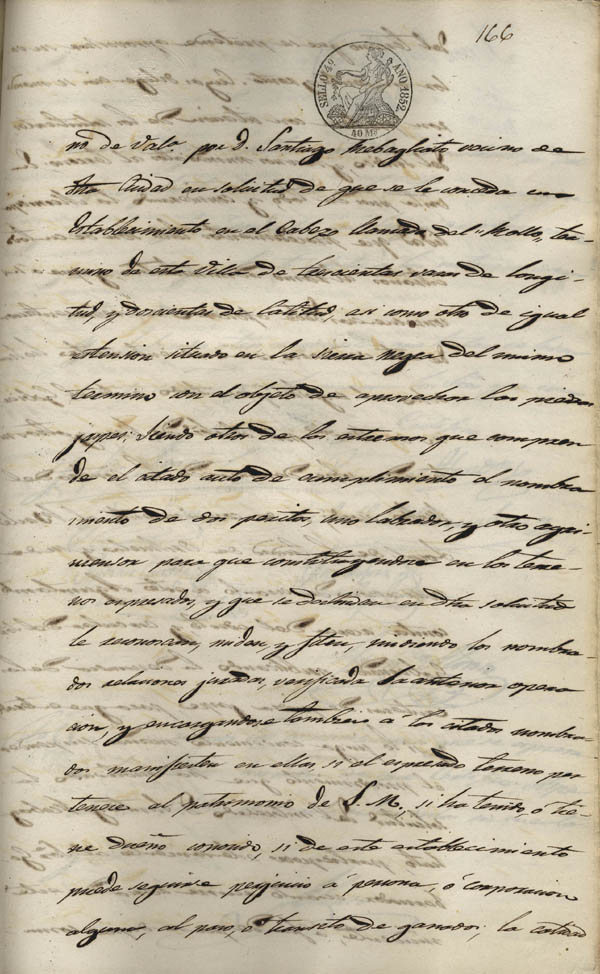 166
SELLO 4º AÑO 1852.
40 Ms
no de Vala por D. Santiago Rebagliato vecino de
dha Ciudad en solicitud de que se le conceda en
establecimiento en el Cabezo llamado del "Mollo", ter-
mino de esta Villa de trescientas varas de longi-
tud, y doscientas de latitud, asi como otro de igual
estension situado en la sierra negra del mismo
termino con el objeto de aprovechar las piedras
jaspes: Siendo otros de los estremos que compren
de el citado auto de cumplimiento el nombra
miento de dos peritos, uno labrador, y otro agri-
mensor para que constituyendose en los terre-
nos espresados, y que se deslindan en dha solicitud
le reconozcan, midan, y fiten, rindiendo los nombra-
dos relaciones juradas, verificada la anterior opera
cion, y encargandose tambien á los citados nombra-
dos manifiesten en ellas, si el espresado terreno per
tenece al patrimonio de S. M., si ha tenido, ó tie-
ne dueño conocido, si de este establecimiento
puede seguirse perjuicio á persona, ó corporacion
alguna, al paso, ó transito de ganados; la calidad